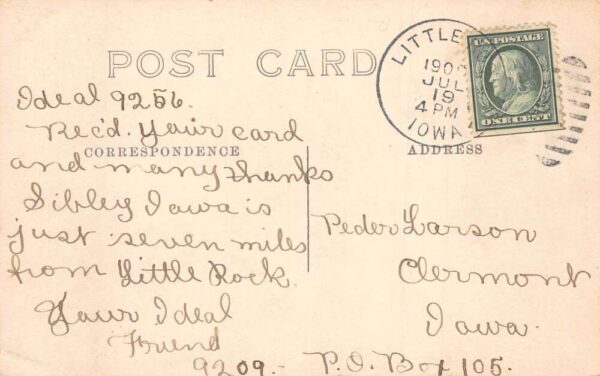 POST CARD
LITTLE
190
JUL
19
4 PM
IOWA
U.S. POSTAGE
ONE CENT
CORRESPONDENCE
ADDRESS
Ideal 9256.
Rec'd. your card
and many thanks
Sibley Iowa is
just seven miles
from Little Rock.
Your Ideal
Friend
9209.
Peder Larson
Clermont
Iowa.
P.O. Box 105.